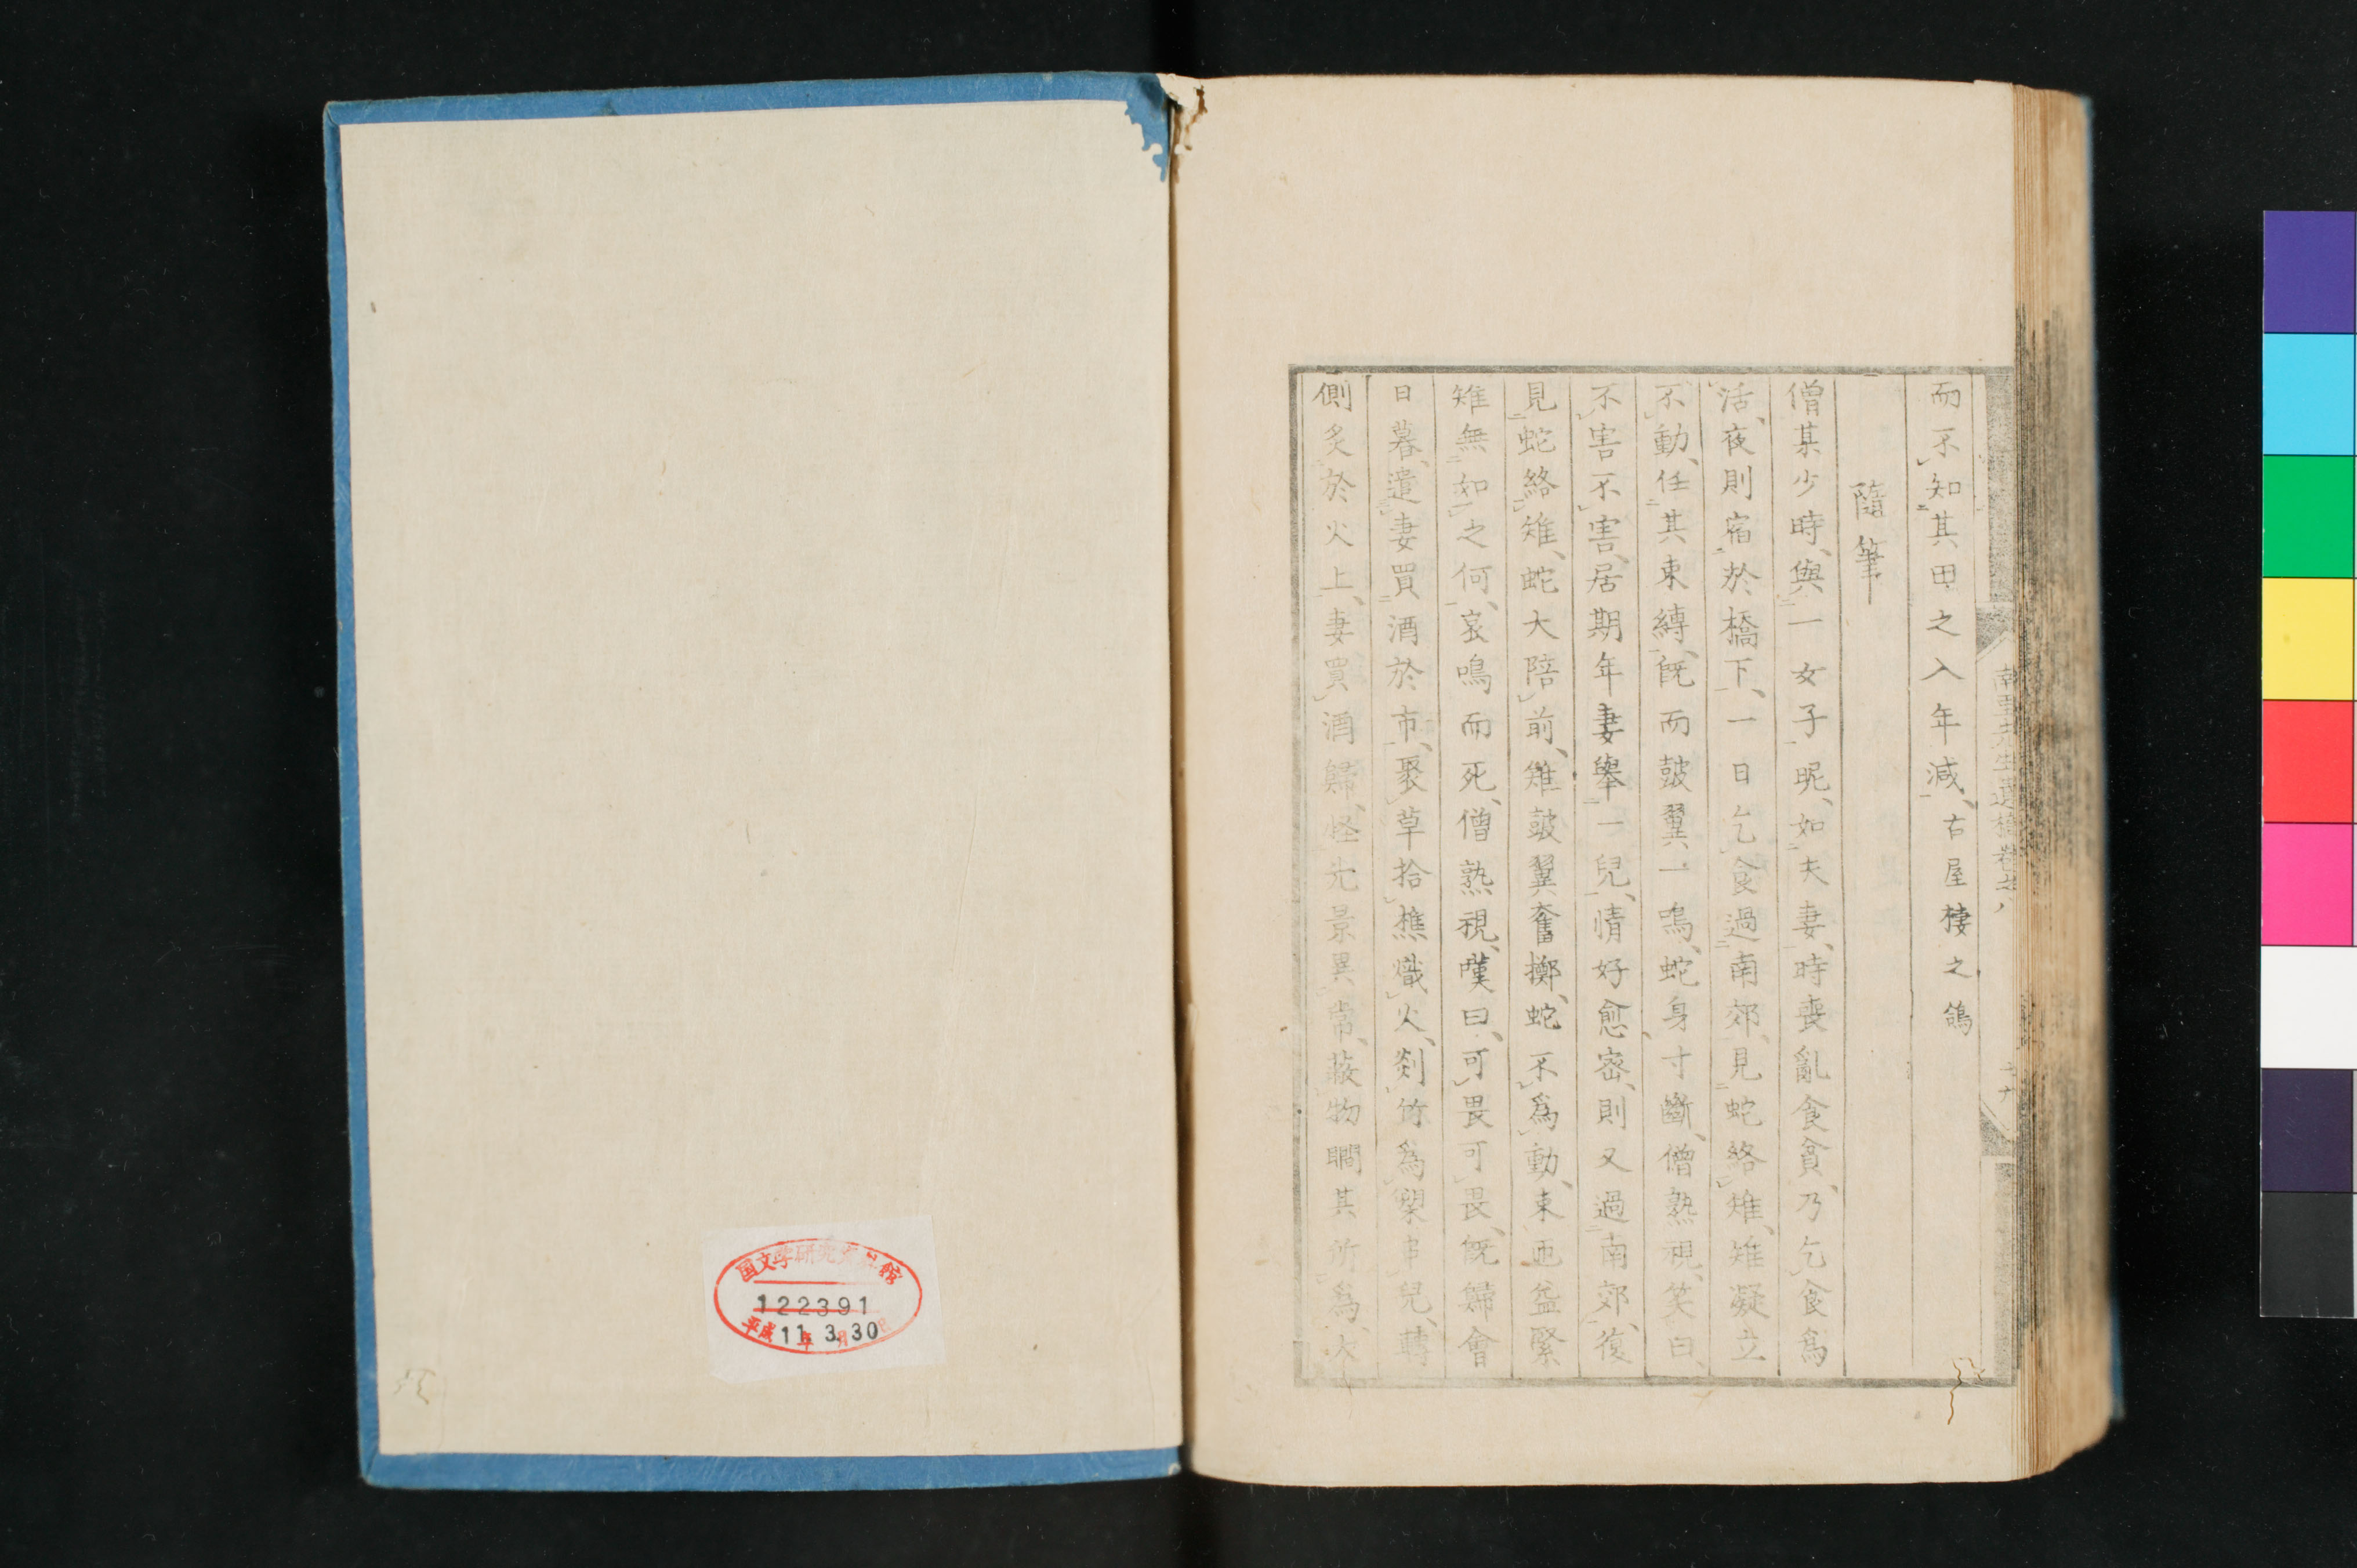 而不知其甲之入年減、古屋棲之鴿
隨筆
僧某少時、與一女子昵、如夫妻、時喪亂食貧、乃乞食爲
活、夜則宿於橋下、一日乞食過南郊、見蛇絡雉、雉凝立
不動、任其束縛、既而鼓翼一鳴、蛇身寸斷、僧熟視、笑曰、
不害不害、居期年妻擧一兒、情好愈密、則又過南郊、復
見蛇絡雉、蛇大陪前、雉鼓翼奮擲、蛇不爲動、束迺益緊
雉無如之何、哀鳴而死、僧熟視、嘆曰、可畏可畏、既歸會
日暮、遣妻買酒於市、聚草拾樵熾火、剡竹爲梁串兒、轉
側炙於火上、妻買酒歸、怪光景異常、蔽物瞷其所爲、大
国文学研究資料館
122391
平成11年3月30日